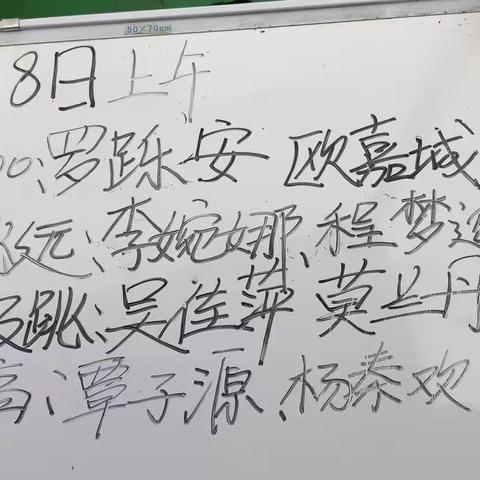 50×70cm
8日上午
00:罗跞安 欧嘉城
远:李婉娜、程梦
跳:吴佳萍 莫兰丹
高:覃子源、杨秦欢